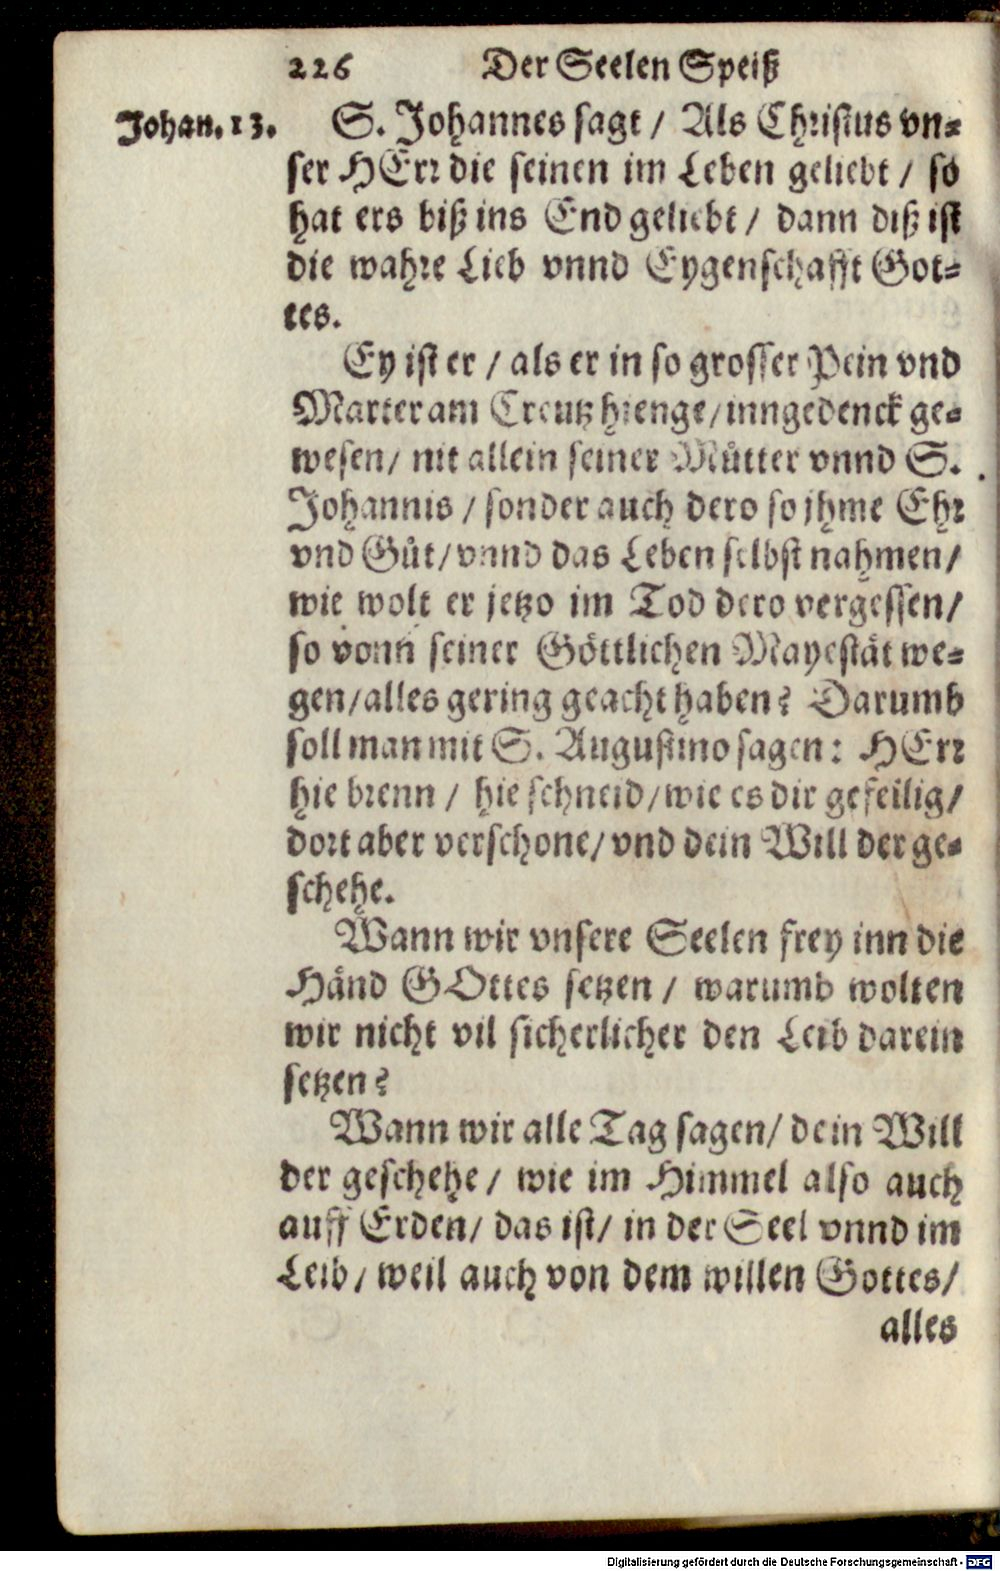 226 Der Seelen Speiß
Johan. 13.
S. Johannes sagt / Als Christus vn-
ser HErr die seinen im Leben geliebt / so
hat ers biß ins End geliebt / dann diß ist
die wahre Lieb vnnd Eygenschafft Got-
tes.
Ey ist er / als er in so grosser Pein vnd
Marter am Creutz hienge / inngedenck ge-
wesen / nit allein seiner Můtter vnnd S.
Johannis / sonder auch dero so jhme Ehr
vnd Gůt / vnnd das Leben selbst nahmen /
wie wolt er jetzo im Tod dero vergessen /
so vonn seiner Göttlichen Mayestät we-
gen / alles gering geacht haben? Darumb
soll man mit S. Augustino sagen: HErr
hie brenn / hie schneid / wie es dir gefeilig /
dort aber verschone / vnd dein Will der ge-
schehe.
Wann wir vnsere Seelen frey inn die
Händ GOttes setzen / warumb wolten
wir nicht vil sicherlicher den Leib darein
setzen?
Wann wir alle Tag sagen / dein Will
der geschehe / wie im Himmel also auch
auff Erden / das ist / in der Seel vnnd im
Leib / weil auch von dem willen Gottes /
alles
Digitalisierung gefördert durch die Deutsche Forschungsgemeinschaft - DFG